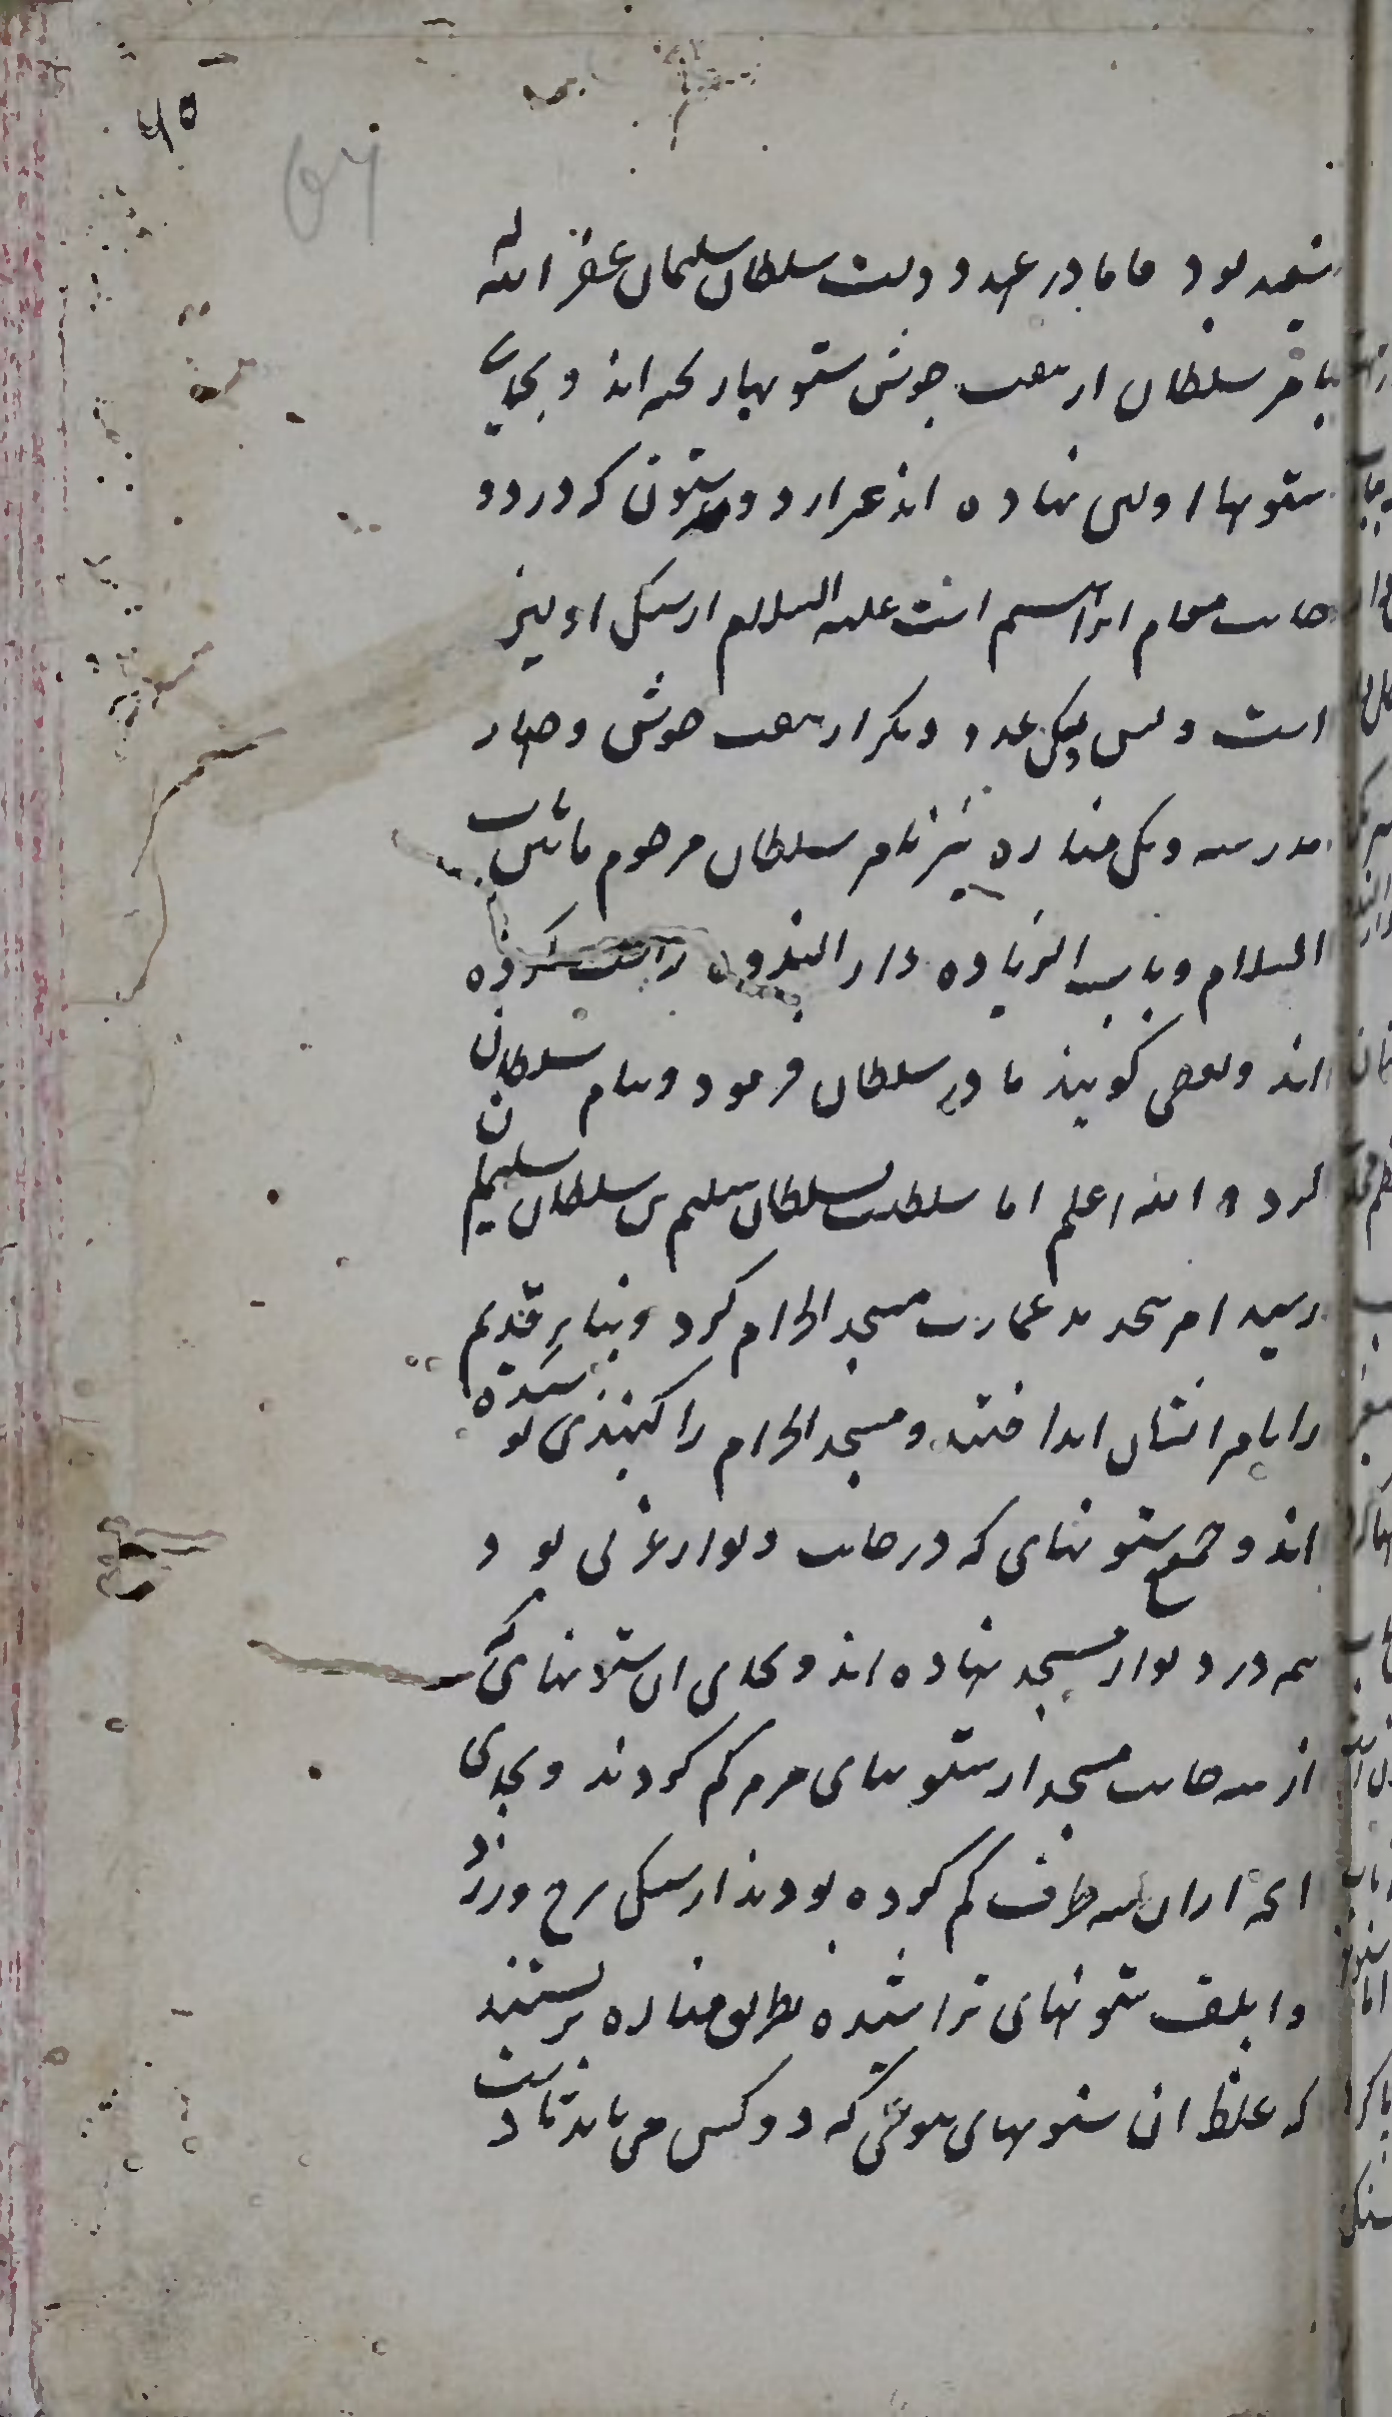 ۶۵
۵۶
شنیده بود اما در عهد دولت سلطان سلیمان غفر الله له
بامر سلطان از هفت جوش ستونها ریخته اند و بجای
ستونها اولین نهاده اند غیر از دو ستون که در دو
جانب مقام ابراهیم است علیه السلام از سنک اولین
است و پس و یکی عدد دیکر از هفت جوش و چهار
مدرسه و یک مناره نیز بامر سلطان مرحوم مابین باب
السلام و باب الزیاده دار الندوه راست کرده
اند و بعضی کویند مادر سلطان فرمود و بنام سلطان
کرد و الله اعلم اما سلطنت بسلطان سلیم بن سلطان سلیمان
رسید امر بتجدید عمارت مسجد الحرام کرد و بناء قدیم
را بامر ایشان انداختند و مسجد الحرام را کنبذی نو شده
اند و جمیع ستونهای که در جانب دیوار غربی بود
همه در دیوار مسجد نهاده اند و بجای ان ستونهای که
از سه جانب مسجد از ستونهای مرمر کم کردند و بجای
انچه از ان سه طرف کم کرده بودند از سنکی سرخ و زرد
و ابلق ستونهای تراشیده بطریق مناره بر بستند
که غلظ ان ستونهای بنوعی که دو کس می باید تا دست